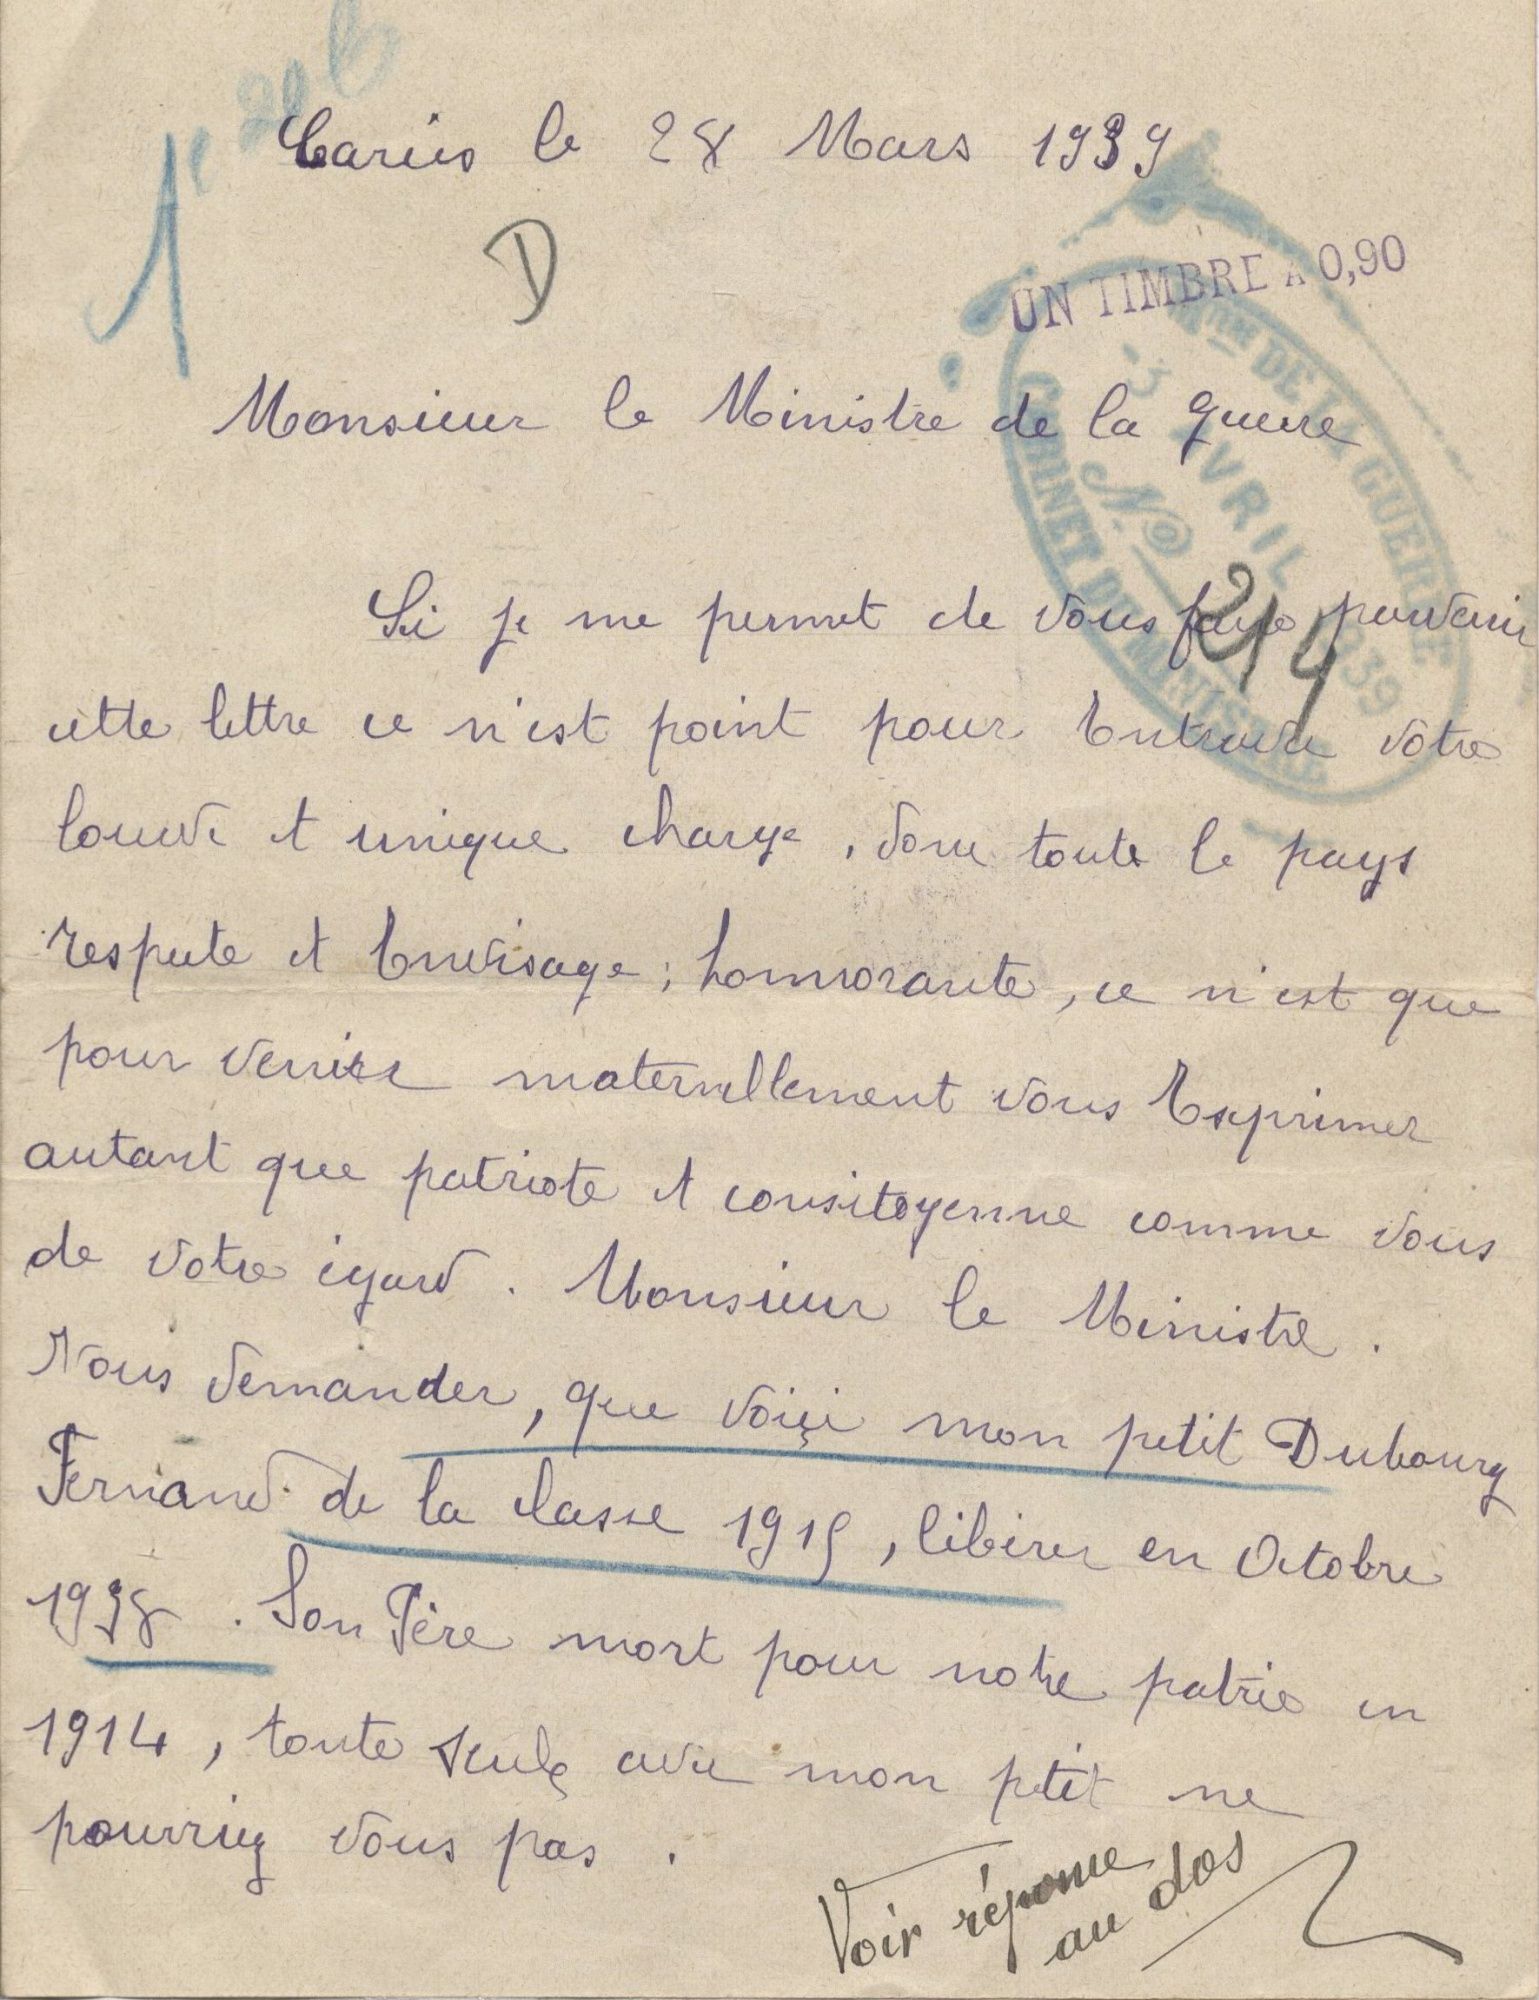 1e
20 b
Paris le 28 Mars 1939
D
UN TIMBRE A 0,90
Mtre DE LA GUERRE
CABINET DU MINISTRE
3 AVRIL 1939
No 214
Monsieur le Ministre de la guerre
Si je me permet de vous faire parvenir
cette lettre ce n'est point pour Entraver votre
lourde et unique charge, donc toute le pays
respecte et Envisage; honnorante, ce n'est que
pour venire maternellement vous Exprimer
autant que patriote et consitoyenne comme vous
de votre égard. Monsieur le Ministre.
Vous demander, que voiçi mon petit Dubourg
Fernand de la classe 1915, libérer en Octobre
1938. Son Père mort pour notre patrie en
1914, toute seule avec mon petit ne
pourriez vous pas.
Voir réponse
au dos